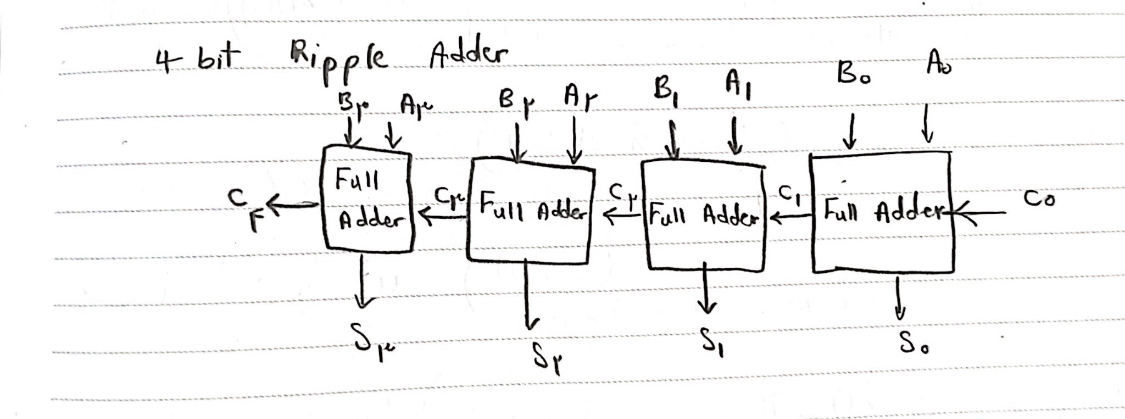 4 bit Ripple Adder
B۳ A۳ B۲ A۲ B1 A1 B0 A0
C۴ Full Adder C۳ Full Adder C۲ Full Adder C1 Full Adder C0
S۳ S۲ S1 S0